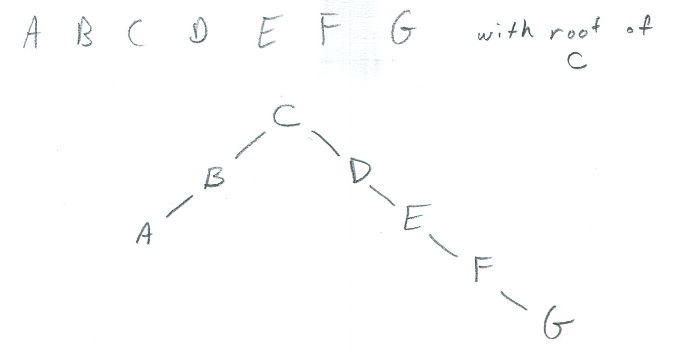 A B C D E F G with root of
C
C
B D
A E
F
G